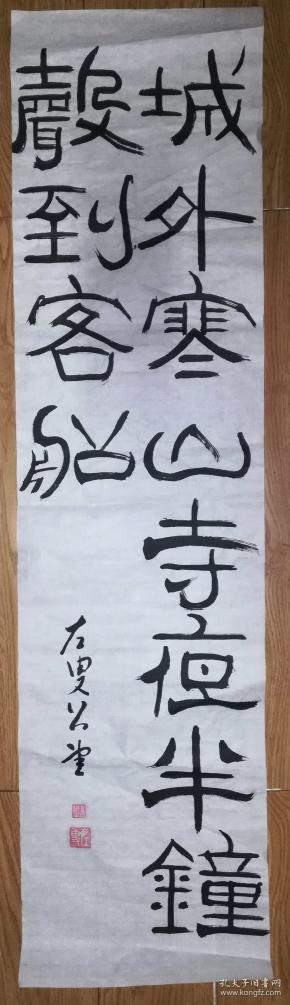 城外寒山寺夜半鐘
聲到客船
左叟公堂
孔夫子旧书网
www.kongfz.com